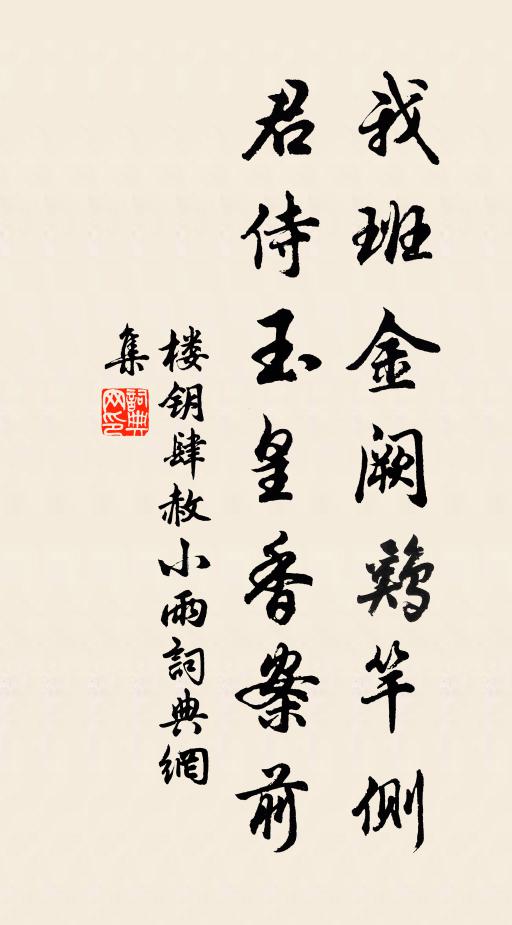 我班金阙鶏竿側
君侍玉皇香案前
楼钥肆赦小雨詞典網
集
詞典
网印